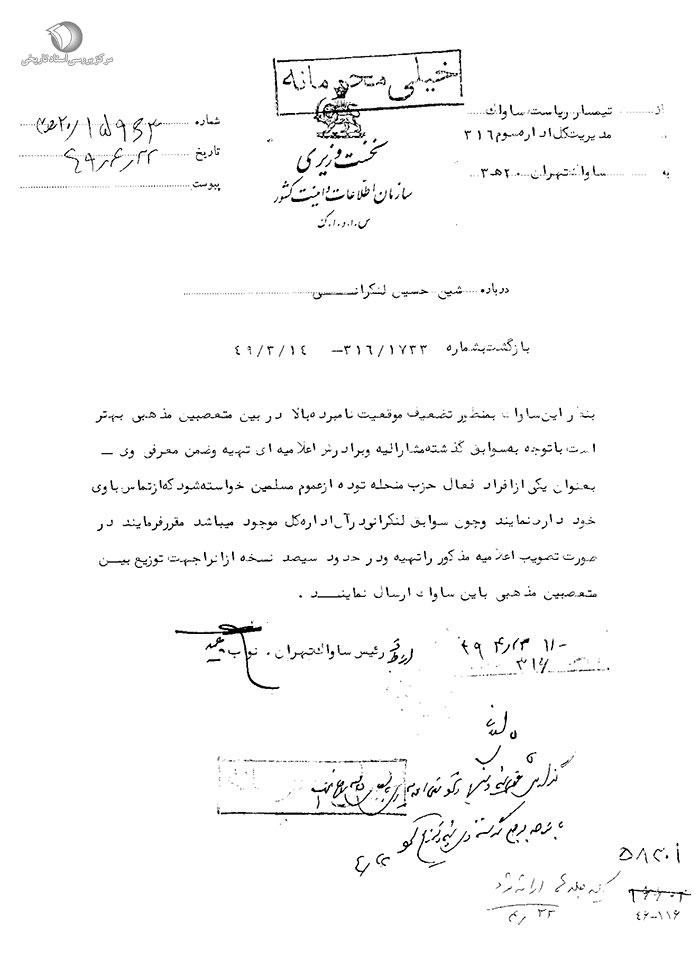 مرکز بررسی اسناد تاریخی
خیلی محرمانه
نخست وزیری
سازمان اطلاعات و امنیت کشور
س.ا.و.ا.ک
از تیمسار ریاست ساواك
مدیریت کل اداره سوم ۳۱۶
به ساواك تهران ۲۰هـ۳
شماره ۱۵۹۶۳/۲۰هـ۳
تاریخ ۴۹/۴/۲۲
پیوست
درباره شیخ حسین لنکرانی
بازگشت بشماره ۳۱۶/۱۷۳۳ – ۴۹/۳/۱۴
بنظر این ساواك بمنظور تضعیف موقعیت نامبرده بالا در بین متعصبین مذهبی بهتر
است باتوجه به سوابق گذشته مشارالیه وبرادرش اعلامیه ای تهیه وضمن معرفی وی –
بعنوان یکی ازافراد فعال حزب منحله توده ازعموم مسلمین خواسته شود که ازتماس باوی
خود دارد نمایند وچون سوابق لنکرانی در آن اداره کل موجود میباشد مقررفرمایند در
صورت تصویب اعلامیه مذکور راتهیه ودر حدود سیصد نسخه ازانرا جهت توزیع بین
متعصبین مذهبی باین ساواك ارسال نمایند .
رئیس ساواك تهران . نواب
۳۱۶
گذارش
با توجه
ارائه شد
۴/۲۲
۵۸۳۰۱
۴۶-۱۱۶